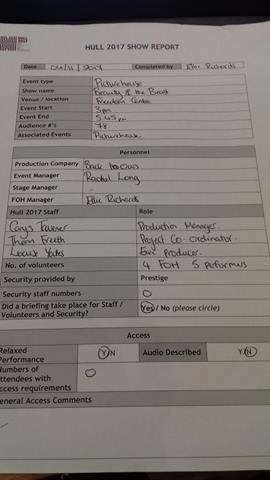 HULL 2017 SHOW REPORT
Date 04/11/2017 Completed by Ellie Richards
Event type Picturehouse
Show name Beauty & the Beast
Venue / location Freedom Centre
Event Start 3pm
Event End 5.45pm
Audience #'s 78
Associated Events Picturehouse
Personnel
Production Company Back to Ours
Event Manager Rachel Long
Stage Manager -
FOH Manager Ellie Richards
Hull 2017 Staff Role
Farmer Production Manager.
Thom Freeth Project Co-ordinator.
Louise Yates Exec Producer.
No. of volunteers 4 FOH 5 Performers
Security provided by Prestige
Security staff numbers 0
Did a briefing take place for Staff / Volunteers and Security? Yes / No (please circle)
Access
Relaxed Performance Y/N Audio Described Y/N
Numbers of attendees with access requirements 0
General Access Comments